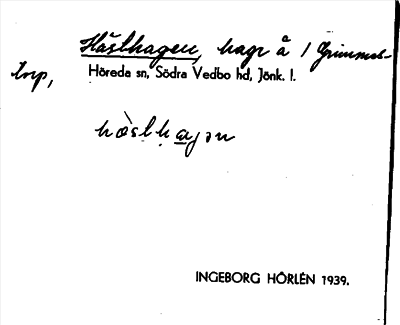 Hästhagen, hage å 1 Grimmels-
torp,
Höreda sn, Södra Vedbo hd, Jönk. l.
hæ̀sthaɡən
INGEBORG HÖRLÉN 1939.